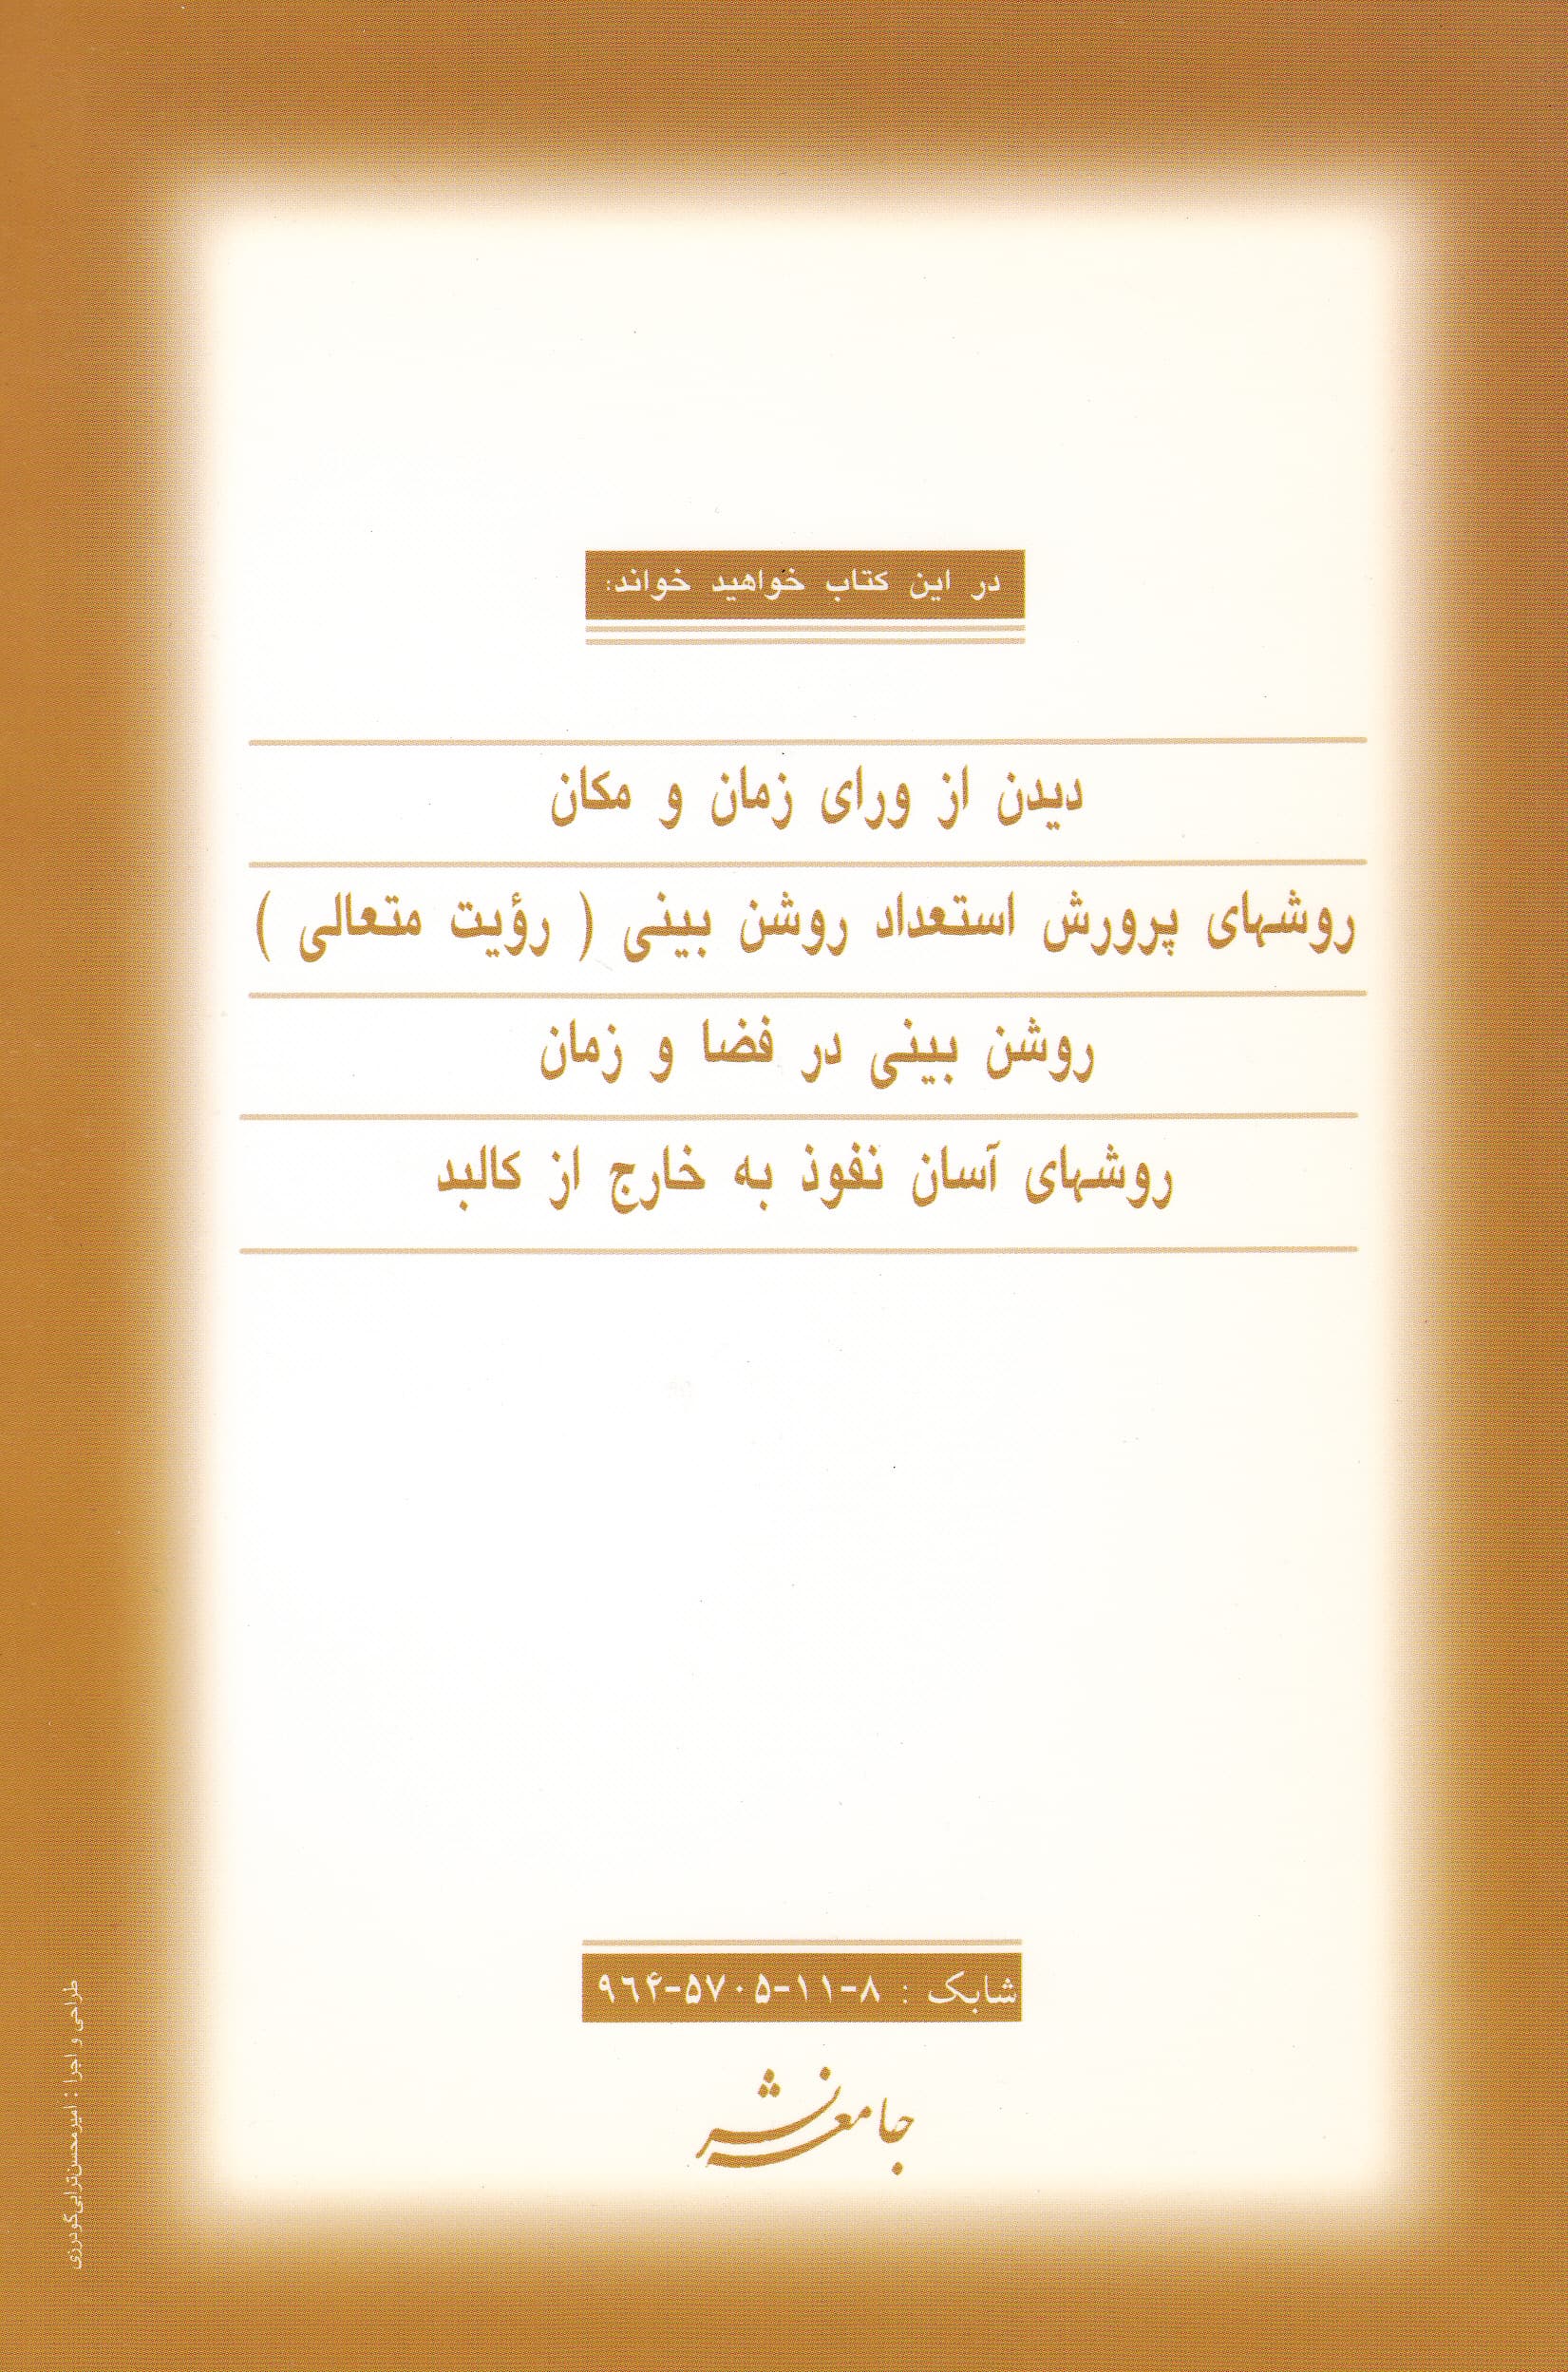 در این کتاب خواهید خواند:
دیدن از ورای زمان و مکان
روشهای پرورش استعداد روشن بینی ( رؤیت متعالی )
روشن بینی در فضا و زمان
روشهای آسان نفوذ به خارج از کالبد
شابک : ۸-۱۱-۵۷۰۵-۹۶۴
جامعه نشر
طراحی و اجرا : امیرمحسن ترابی گودرزی